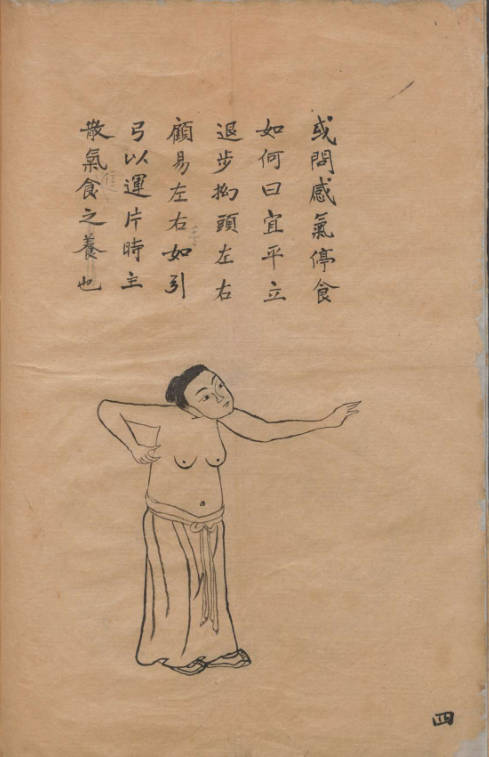 或問感氣停食
如何曰宜平立
退步拗頭左右
顧易左右如引
弓以運片時主
散氣食之養也
四